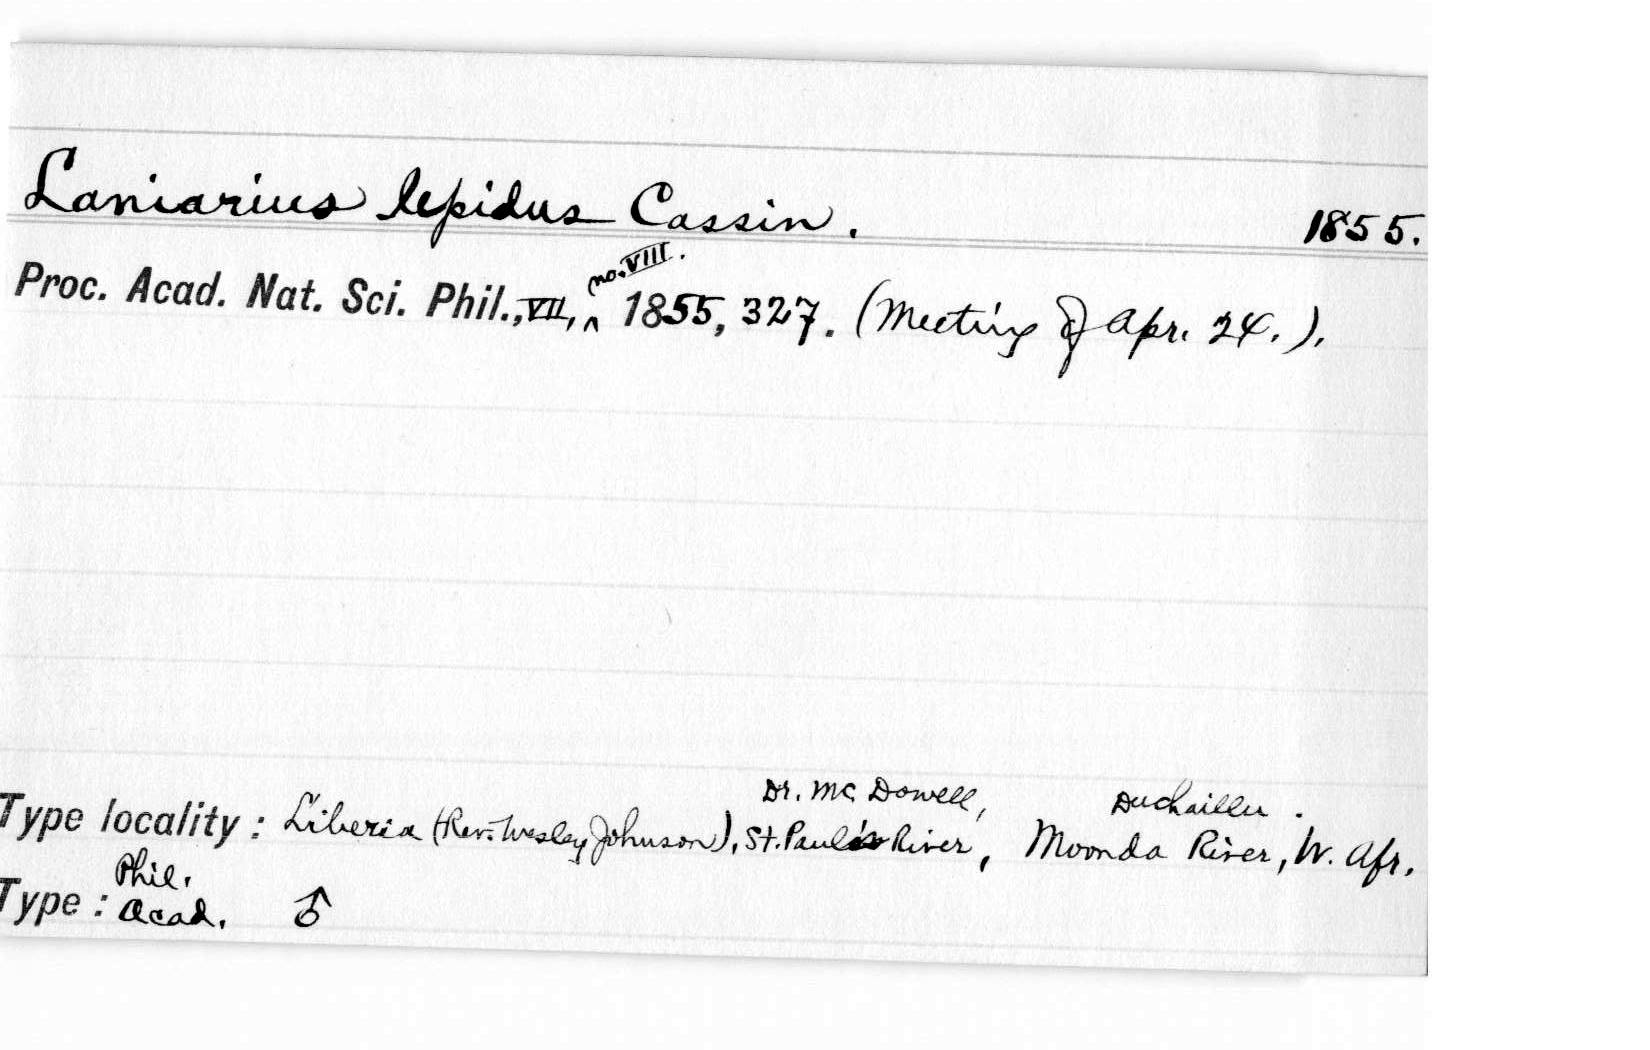 Laniarius lepidus Cassin. 1855.
Proc. Acad. Nat. Sci. Phil., VII, no. VIII. 1855, 327. (Meeting of Apr. 24.).
Dr. Mc Dowell, Duchaillu.
Type locality: Liberia (Rev. Wesley Johnson), St. Paul's River, Moonda River, W. Afr.
Phil.
Type: Acad. ♂